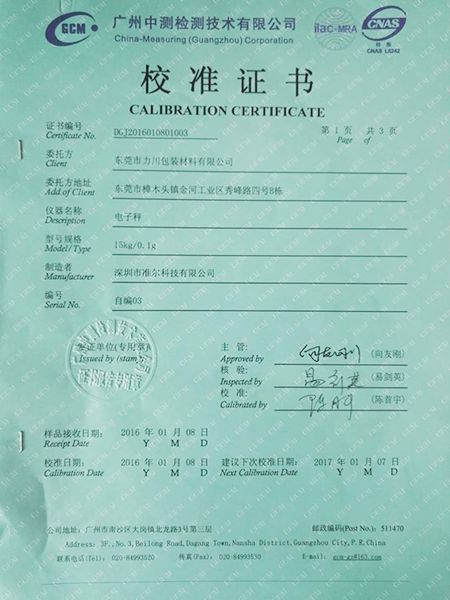 GCM
广州中测检测技术有限公司
China-Measuring (Guangzhou) Corporation
ilac-MRA
CNAS
校准
CNAS L5242
校准证书
CALIBRATION CERTIFICATE
证书编号 DGJ2016010801003 第 1 页 共 3 页
Certificate No. Page of
委托方 东莞市力川包装材料有限公司
Client
委托方地址 东莞市樟木头镇金河工业区秀峰路四号B栋
Add of Client
仪器名称 电子秤
Description
型号规格 15kg/0.1g
Model/Type
制造者 深圳市准尔科技有限公司
Manufacturer
编号 自编03
Serial No.
发证单位(专用章)
Issued by (stamp)
主管:
Approved by (向友刚)
核验:
Inspected by (易剑英)
校准:
Calibrated by (陈首宇)
样品接收日期: 2016 年 01 月 08 日
Receipt Date Y M D
校准日期: 2016 年 01 月 08 日 建议下次校准日期: 2017 年 01 月 07 日
Calibration Date Y M D Next Calibration Date Y M D
公司地址: 广州市南沙区大岗镇北龙路3号第三层 邮政编码(Post No.): 511470
Address: 3F.,No.3,Beilong Road,Dagang Town,Nansha District,Guangzhou City,P.R.China
联系电话(Tel): 020-84993520 传真(Fax): 020-84993530 E-mail: gcm-gz@163.com